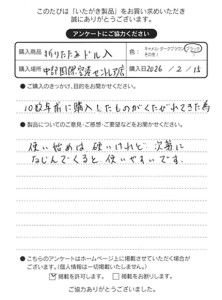 このたびは「いたがき製品」をお買い求めいただき
誠にありがとうございます。
アンケートにご協力ください
購入商品 折りたたみドル入 色: キャメル・ダークブラウン・ブラック
その他(
購入場所 中部国際空港セントレア店 購入日2026 / 2 / 15
● ご購入のきっかけ、目的をお聞かせください。
10数年前に購入したものがくたびれてきた為
● 製品についてのご意見・ご感想・ご要望などをお聞かせください。
使い始めは硬いけれど 次第に
なじんでくると使いやすいです。
● こちらのアンケートはホームページ上に掲載させていただく場合が
ございます。(個人情報は一切掲載いたしません)
掲載を許可します。 掲載をお断りします。
ご協力ありがとうございました。